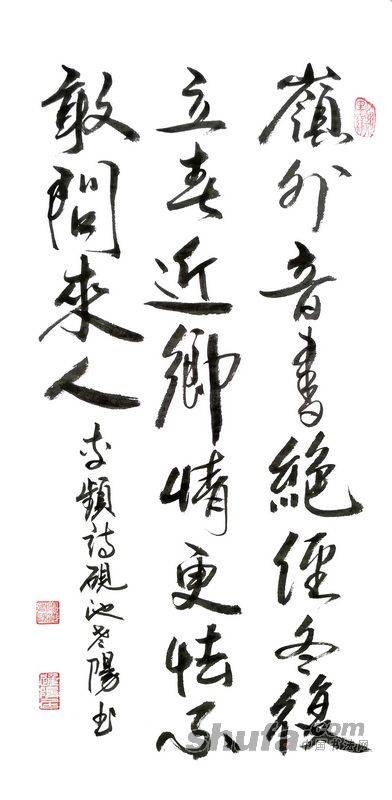 嶺外音書絕經冬復
立春近鄉情更怯不
敢問來人
李頻詩硯池陽书
shufa.com
中国书法网